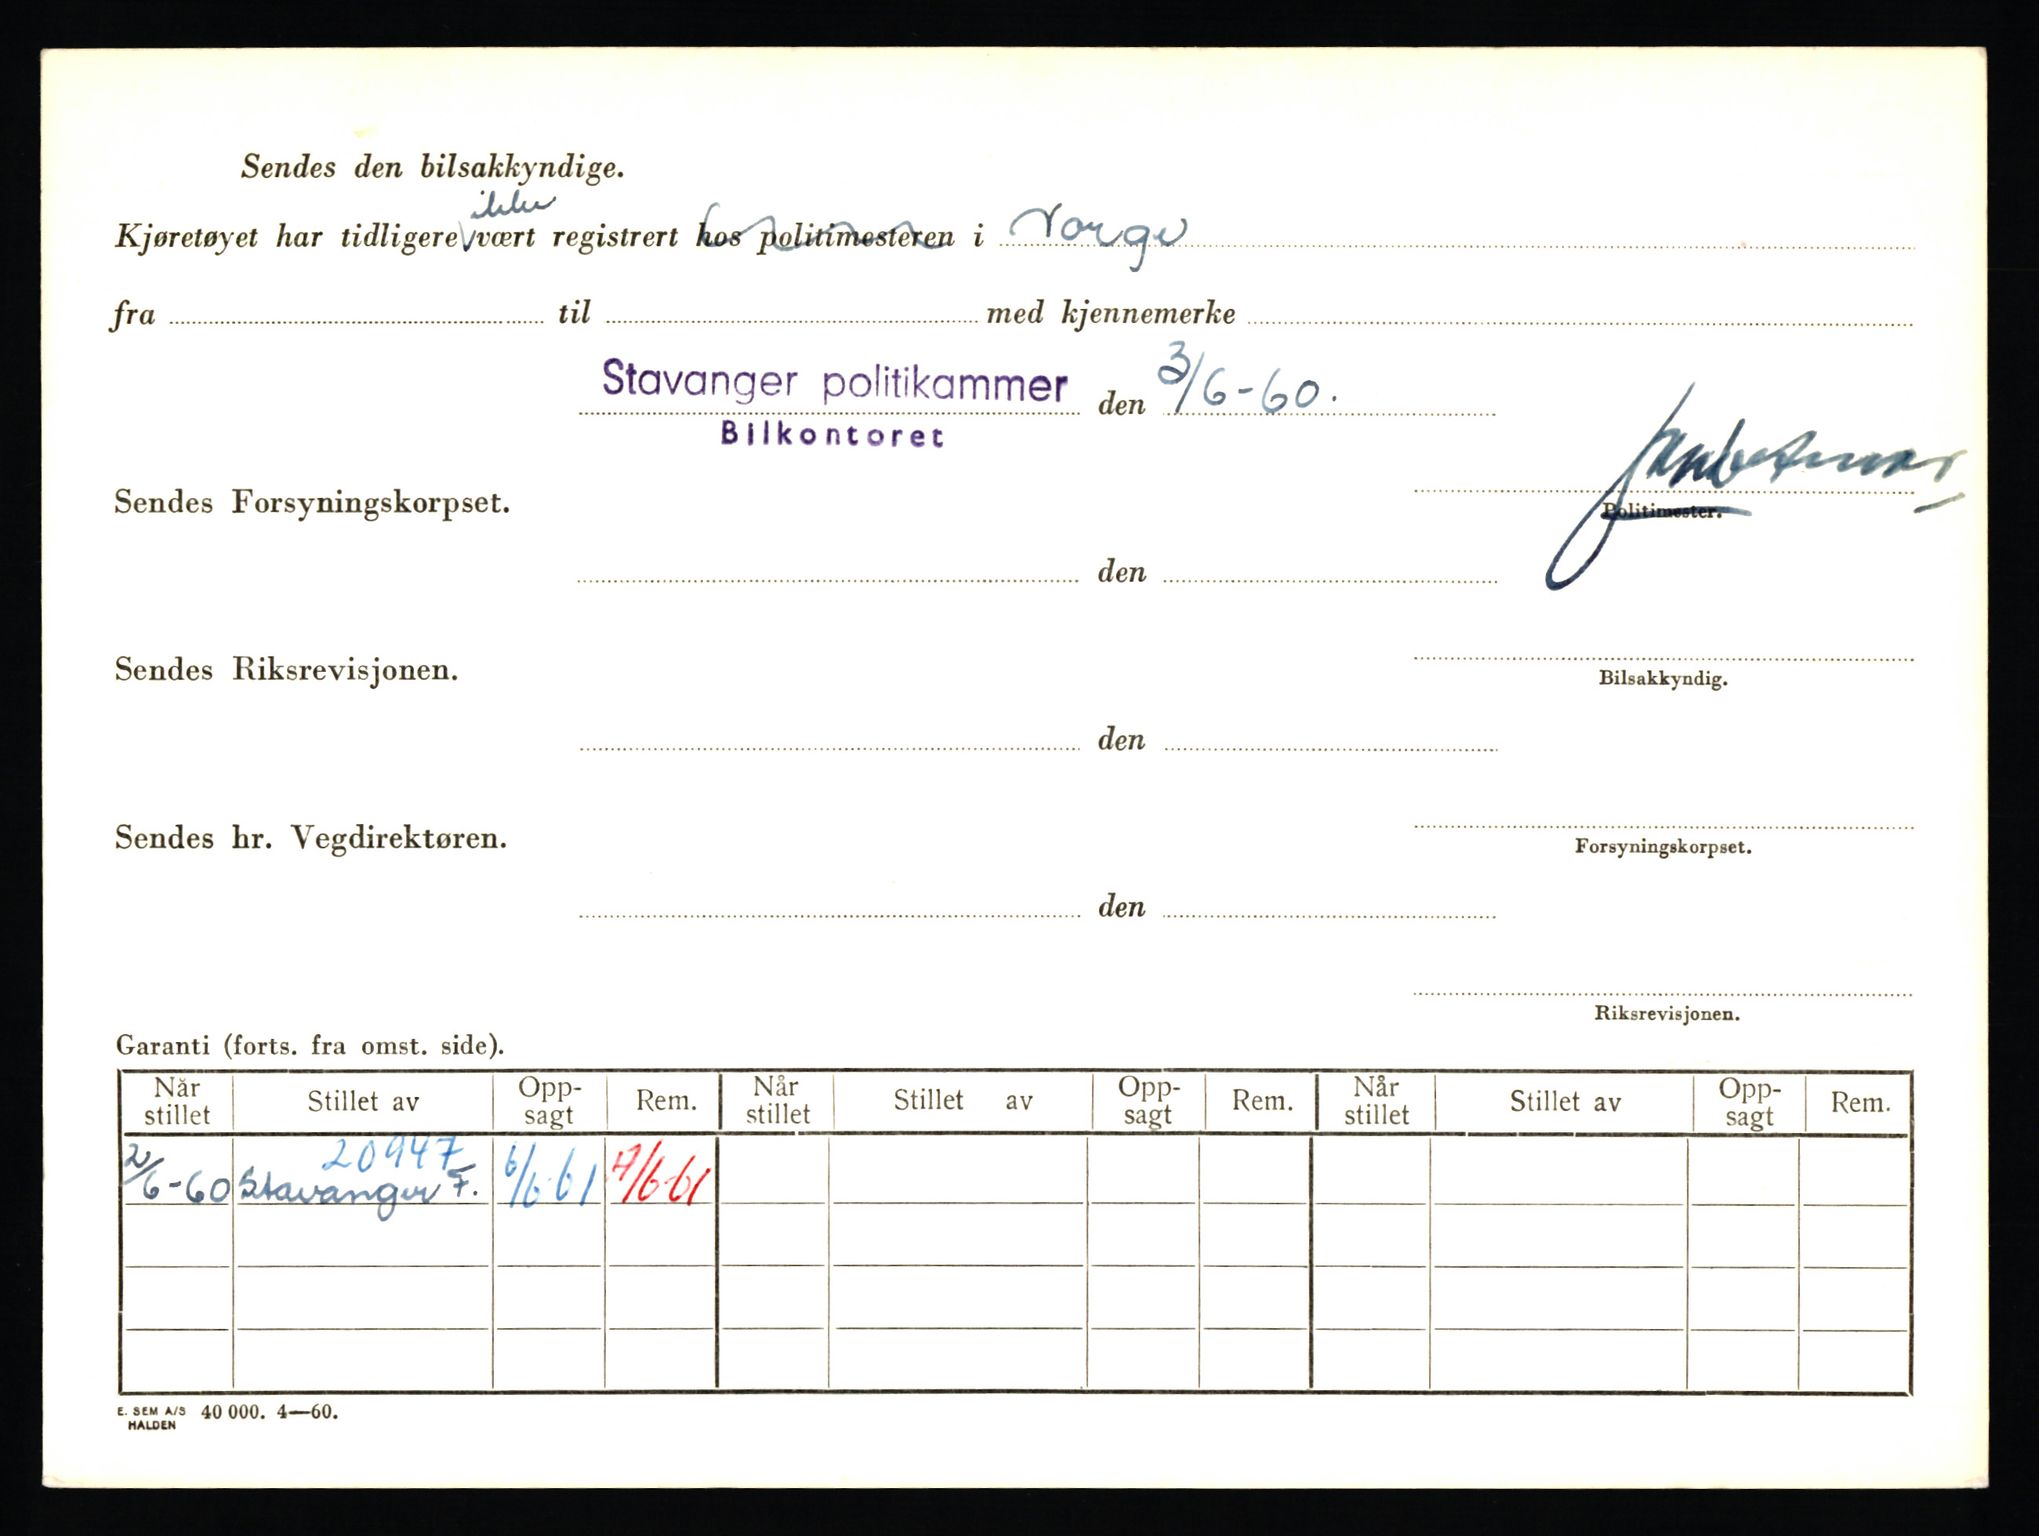 Sendes den bilsakkyndige.
ikke
Kjøretøyet har tidligere vært registrert hos politimesteren i Norge
fra til med kjennemerke
Stavanger politikammer den 3/6-60.
Bilkontoret
Sendes Forsyningskorpset.
Politimester.
den
Sendes Riksrevisjonen.
Bilsakkyndig.
den
Sendes hr. Vegdirektøren.
Forsyningskorpset.
den
Riksrevisjonen.
Garanti (forts. fra omst. side).
Når stillet Stillet av Opp-sagt Rem. Når stillet Stillet av Opp-sagt Rem. Når stillet Stillet av Opp-sagt Rem.
20947
2/6-60 Stavanger F. 6/6-61 /6-61
E. SEM A/S 40 000. 4—60.
HALDEN